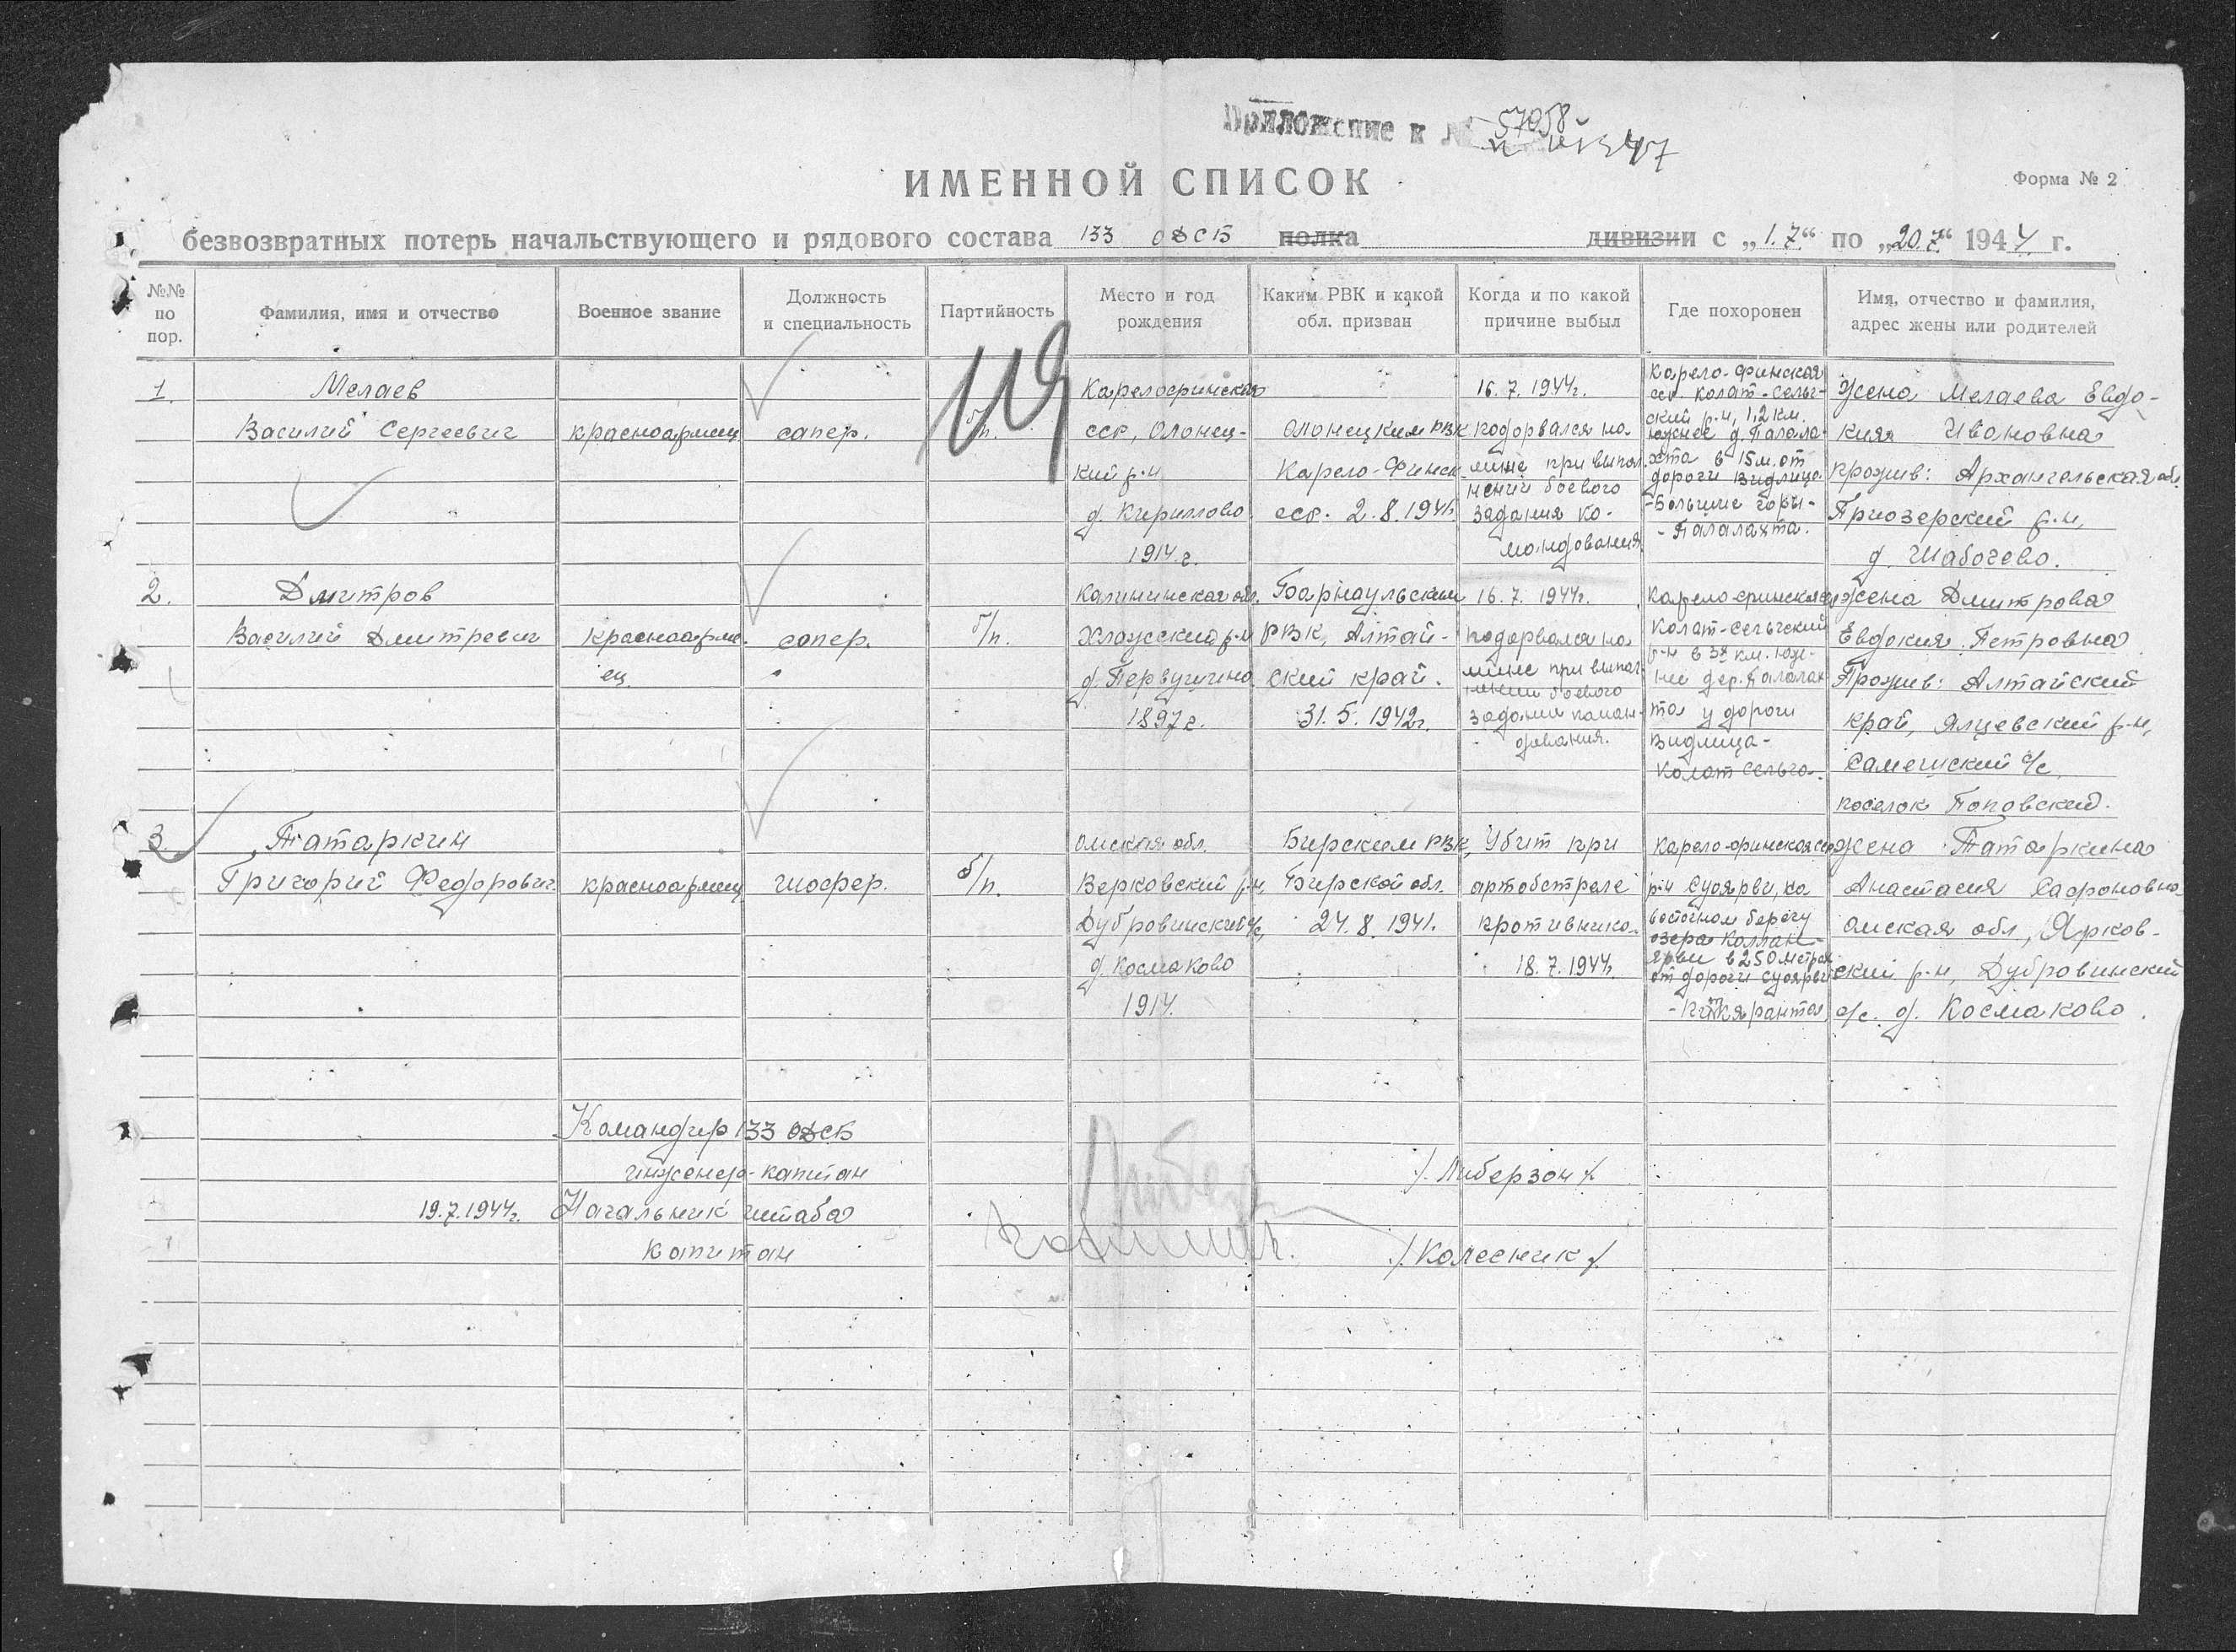 Приложение к № 57058
ИМЕННОЙ СПИСОК
Форма № 2
безвозвратных потерь начальствующего и рядового состава 133 ОДСБ полка дивизии с „1.7“ по „20.7“ 1944 г.
№№ по пор.
Фамилия, имя и отчество
Военное звание
Должность и специальность
Партийность
Место и год рождения
Каким РВК и какой обл. призван
Когда и по какой причине выбыл
Где похоронен
Имя, отчество и фамилия, адрес жены или родителей
119
1.
Мелаев
Василий Сергеевич
красноармеец
сапер.
б/п.
Карелофинская
сср, Олонец-
кий р-н
д. Кириллово
1914.г.
Олонецким РВК
Карело-Финск.
сср. 2.8.1941.
16.7.1944г.
подорвался на
мине при выпол-
нении боевого
задания ко-
мандования.
Карело-Финская
сср. Колат-Сельг-
ский р-н, 1,2 км.
южнее д. Палала-
хта в 15 м. от
дороги Видлица
-Большие горы-
-Палалахта.
Жена Мелаева Евдо-
кия Ивановна
прожив: Архангельская обл.
Приозерский р-н,
д. Шабочево.
2.
Дмитров
Василий Дмитревич
красноарме-
ец
сапер.
б/п.
Калининская обл.
р-н
д. Первушино
1897г.
Барнаульским
РВК, Алтай-
ский край.
31.5.1942г.
16.7.1944г.
подорвался на
мине при выпол-
нении боевого
задания коман-
дования.
Карелофинская
Колат-сельгский
р-н в 3х км. юж-
нее дер. Палалах-
та у дороги
Видлица-
Колат Сельга.
жена Дмитрова
Евдокия Петровна
Прожив: Алтайский
край, Ялцевский р-н,
Самешский с/с
поселок Поповский.
3.
Татаркин
Григорий Федорович
красноармеец
шофер.
б/п.
Омская обл.
Верковский р-н,
Дубровинский с/с,
д. Космаково
1914.
Бирским РВК,
Бирской обл.
24.8.1941.
Убит при
артобстреле
противника.
18.7.1944г.
Карело-финская сср
р-н Суоярви, на
восточном берегу
озера Коллан-
ярви в 250 метрах
от дороги Суоярви
-Питкяранта,
жена Татаркина
Анастасия Сафоновна
Омская обл, Ярков-
ский р-н, Дубровинский
с/с. д. Космаково.
Командир 133 ОДСБ
инженер-капитан
/. Либерзон /.
19.7.1944г. Начальник штаба
капитан
/. Колесник /.